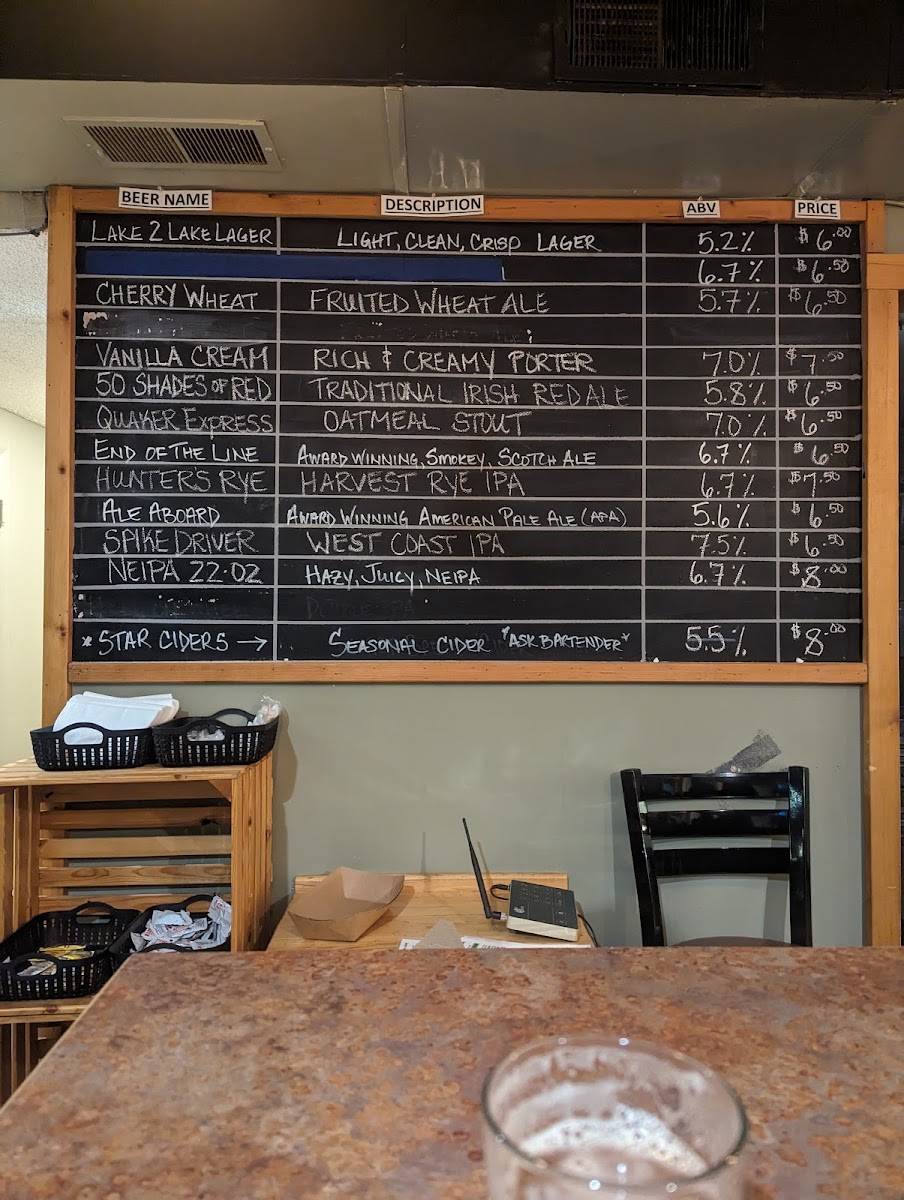 BEER NAME DESCRIPTION ABV PRICE
LAKE 2 LAKE LAGER LIGHT, CLEAN, CRISP LAGER 5.2% $6.00
6.7% $6.50
CHERRY WHEAT FRUITED WHEAT ALE 5.7% $6.50
VANILLA CREAM RICH & CREAMY PORTER 7.0% $7.50
50 SHADES OF RED TRADITIONAL IRISH RED ALE 5.8% $6.50
QUAKER EXPRESS OATMEAL STOUT 7.0% $6.50
END OF THE LINE AWARD WINNING, SMOKEY, SCOTCH ALE 6.7% $6.50
HUNTER'S RYE HARVEST RYE IPA 6.7% $7.50
ALE ABOARD AWARD WINNING AMERICAN PALE ALE (APA) 5.6% $6.50
SPIKE DRIVER WEST COAST IPA 7.5% $6.50
NEIPA 22:02 HAZY, JUICY, NEIPA 6.7% $8.00
* STAR CIDERS → SEASONAL CIDER *ASK BARTENDER* 5.5% $8.00